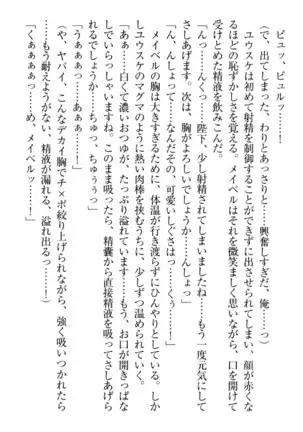 ピュッ、ピュルッ――！
(で、出てしまった、わりとあっさりと……興奮しすぎだ、俺……っ)
ユウスケは初めて射精を制御することができずに出させられてしまい、顔が赤くな
るほどの恥ずかしさを覚える。メイベルはそれを微笑ましく思いながら、口を開けて
受けとめた精液を飲みこんだ。
「んっ……んくっ……陛下、少し射精されてしまいましたね……もう一度元気にして
さしあげます。次は、胸がよろしいでしょうか……んしょっ」
「ん、んしょって……な、なんだその、可愛いしぐさは……くぅ……っ」
メイベルの胸にまでは、体温が行き渡らずにひんやりとしている。しか
しユウスケのマグマのように熱い肉棒を挟むうちに、少しずつ温められていく。
「あぁ……白くて濃いおつゆが、たっぷり溢れています……もう、お口が開きっぱな
しでいらっしゃいますね。このまま吸ったら、精嚢から直接精液を吸ってさしあげら
れるでしょうか……ちゅっ、ちゅぅぅっ」
「うぁぁぁっ……！」
(や、ヤバイ、こんなデカイ胸でチ×ポ絞り上げられながら、強く吸いつかれたら
……もう耐えようがない、精液が漏れる、溢れ出るっ……！)
「くぁぁぁっ……め、メイベルっ……！」